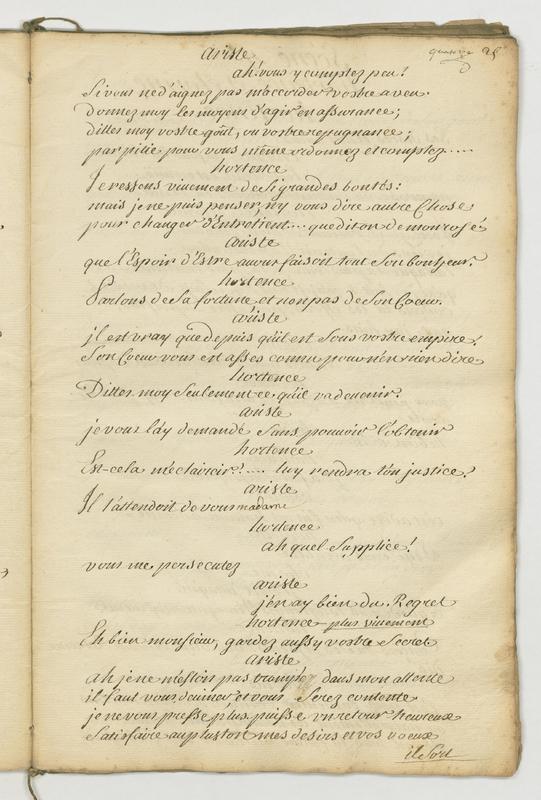 ariste
ah! vous y comptez peu!
Si vous ne d'aignez pas m'accorder vostre aveu.
donnez moy les moyens d'agir en assurance;
dittes moy vostre goût, ou vostre repugnance;
par pitié pour vous même ordonnez et comptez.....
hortence
Je ressens vivement de si grandes bontés:
mais je ne puis penser, ny vous dire autre Chose
pour changer d'Entretient... que dit on de
ariste
que l'Espoir d'Estre faisoit tout Son bonheur.
hortence
Parlons de Sa fortune et non pas de Son Coeur.
ariste
jl est vray que depuis qu'il est Sous vostre empire,
Son Coeur vous est asses connu pour n'en rien dire.
hortence
Dittes moy Seulement ce qu'il va devenir.
ariste
je vous l'ay demandé Sans pouvoir l'obtenir
hortence
Est-cela m'eclaircir?.... luy rendra t'on justice?
ariste
Il l'attendoit de vous madame
hortence
ah quel Supplice!
vous me persecutez
ariste
j'en ay bien du Regret
hortence plus vivement
Eh bien monsieur, gardez aussy vostre Secret
ariste
ah je ne m'estois pas trompé dans mon attente
il faut vous deviner et vous Serez contente
je ne vous presse plus, puisse un retour heureux
Satisfaire au plustost mes desirs et vos voeux
il Sort